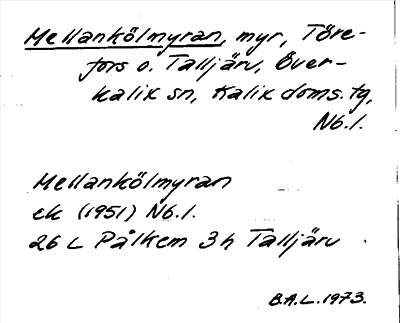 Mellankölmyran, myr, Töre-
fors o. Talljärv, Över-
kalix sn, Kalix doms. tg,
Nb. l.
Mellankölmyran
ek (1951) Nb. l.
26 L Pålkem 3h Talljärv
B.A.L. 1973.